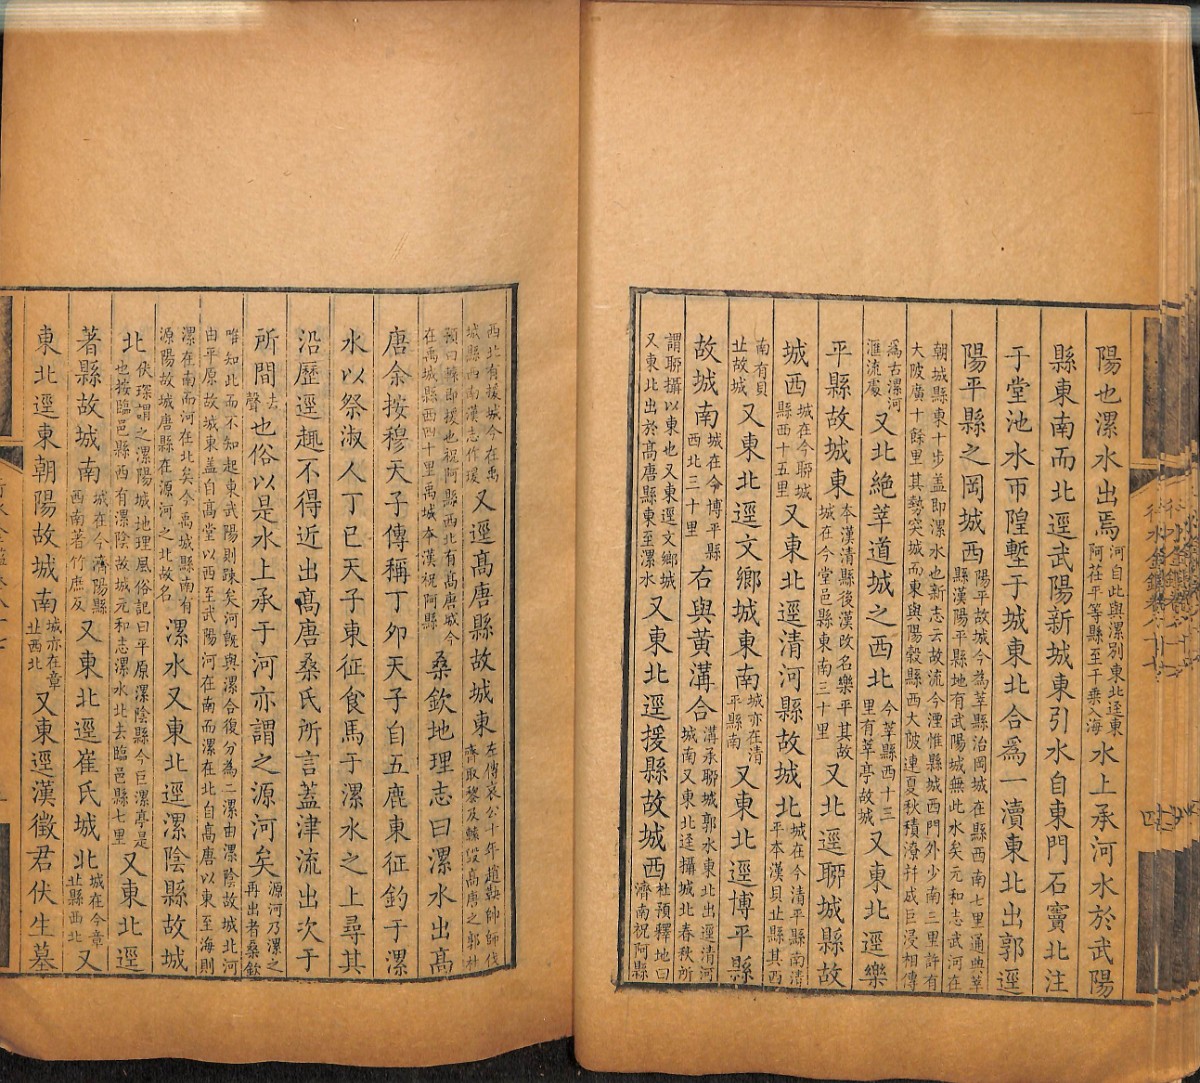 陽也漯水出焉河自此與漯別東北逕東阿茌平等縣至千乘入海水上承河水於武陽
縣東南而北逕武陽新城東引水自東門石竇北注
于堂池水帀隍塹于城東北合爲一瀆東北出郭逕
陽平縣之岡城西陽平故城今為莘縣治岡城在縣西南七里通典莘縣漢陽平縣地有武陽城無此水矣元和志武河在
朝城縣東十步蓋即漯水也新志云故流今湮惟縣城西門外少南三里許有大陂廣十餘里其勢突城而東與陽穀縣西大陂連夏秋積潦幷成巨浸相傳
為古漯河滙流處又北絶莘道城之西北今莘縣西十三里有莘亭故城又東北逕樂
平縣故城東本漢清縣後漢改名樂平其故城在今堂邑縣東南三十里又北逕聊城縣故
城西城在今聊城縣西十五里又東北逕清河縣故城北城在今清平縣南清平本漢貝丠縣其西
南有貝丠故城又東北逕文鄉城東南城亦在清平縣南又東北逕博平縣
故城南城在今博平縣西北三十里右與黃溝合溝承聊城郭水東北出逕清河城南又東北逕攝城北春秋所
謂聊攝以東也又東逕文鄉城又東北出於高唐縣東至漯水又東北逕援縣故城西杜預釋地曰濟南祝阿縣
西北有援城今在禹城縣西南漢志作瑗又逕高唐縣故城東左傳哀公十年趙鞅帥師伐齊取犂及轅毀高唐之郭杜
預曰轅即援也祝阿縣西北有高唐城今在禹城縣西四十里禹城本漢祝阿縣桑欽地理志曰漯水出高
唐余按穆天子傳稱丁夘天子自五鹿東征釣于漯
水以祭淑人丁巳天子東征食馬于漯水之上尋其
沿歷逕趣不得近出高唐桑氏所言蓋津流出次于
所間去聲也俗以是水上承于河亦謂之源河矣源河乃漯之再出者桑欽
唯知此而不知起東武陽則踈矣河旣與漯合復分為二漯由漯陰故城北河由平原故城東蓋自高堂以西至武陽河在南而漯在北自高唐以東至海則
漯在南而河在北矣今禹城縣南有源陽故城唐縣在源河之北故名漯水又東北逕漯陰縣故城
北伏琛謂之漯陽城地理風俗記曰平原漯陰縣今巨漯亭是也按臨邑縣西有漯陰故城元和志漯水北去臨邑縣七里又東北逕
著縣故城南城在今濟陽縣西南著竹庶反又東北逕崔氏城北城在今章丠縣西北又
東北逕東朝陽故城南城亦在章丠西北又東逕漢徵君伏生墓